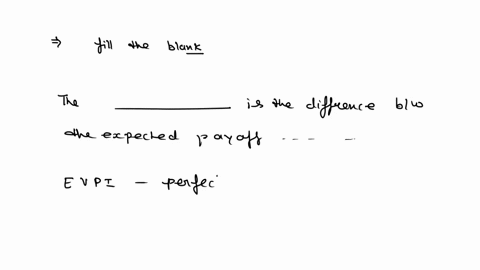 ⇒ fill the blank
The __________ is the difference b/w
the expected payoff --- -
EVPI - perfec